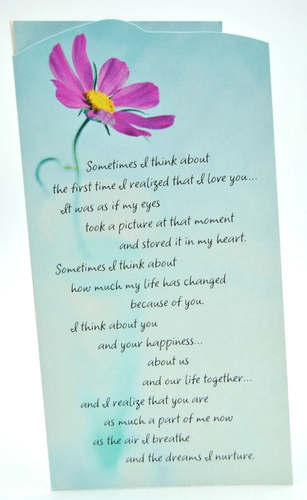 Sometimes I think about
the first time I realized that I love you...
It was as if my eyes
took a picture at that moment
and stored it in my heart.
Sometimes I think about
how much my life has changed
because of you.
I think about you
and your happiness...
about us
and our life together...
and I realize that you are
as much a part of me now
as the air I breathe
and the dreams I nurture.